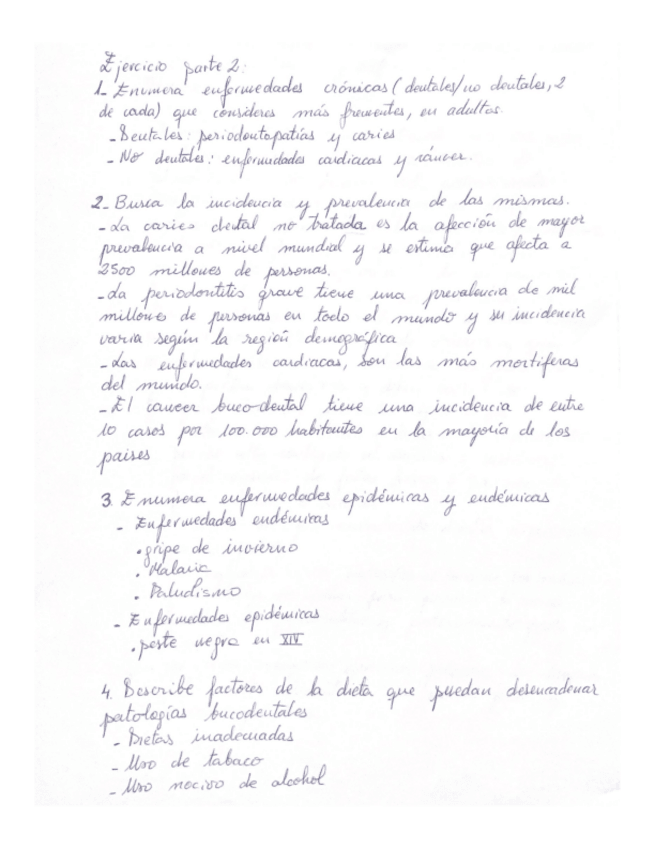 Ejercicio parte 2:
1- Enumera enfermedades crónicas (dentales/no dentales, 2
de cada) que consideres más frecuentes, en adultos.
- Dentales: periodontopatías y caries
- No dentales: enfermedades cardiacas y cáncer.
2- Busca la incidencia y prevalencia de las mismas.
- La caries dental no tratada es la afección de mayor
prevalencia a nivel mundial y se estima que afecta a
2500 millones de personas.
- La periodontitis grave tiene una prevalencia de mil
millones de personas en todo el mundo y su incidencia
varia según la región demográfica
- Las enfermedades cardiacas, son las más mortiferas
del mundo.
- El cancer buco-dental tiene una incidencia de entre
10 casos por 100.000 habitantes en la mayoría de los
paises
3. Enumera enfermedades epidémicas y endémicas
- Enfermedades endémicas
• gripe de invierno
• Malaria
• Paludismo
- Enfermedades epidémicas
• peste negra en XIV
4. Describe factores de la dieta que puedan desencadenar
patologías bucodentales
- Dietas inadecuadas
- Uso de tabaco
- Uso nocivo de alcohol